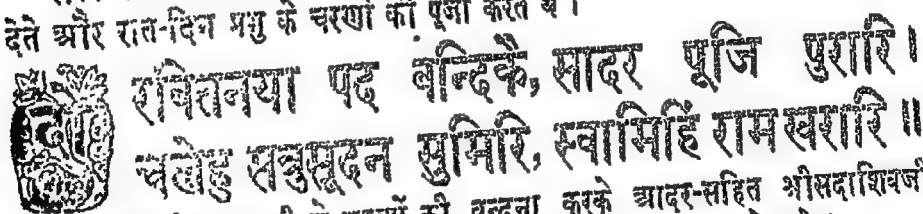 देते और रात-दिन प्रभु के चरणों की पूजा करते थे।
दो० रवितनया पद बन्दिकै, सादर पूजि पुरारि।
चलेहु सत्रुसूदन सुमिरि, स्वामिहिं राम खरारि॥
चरणों की वन्दना करके आदर-सहित श्रीसदाशिवजी